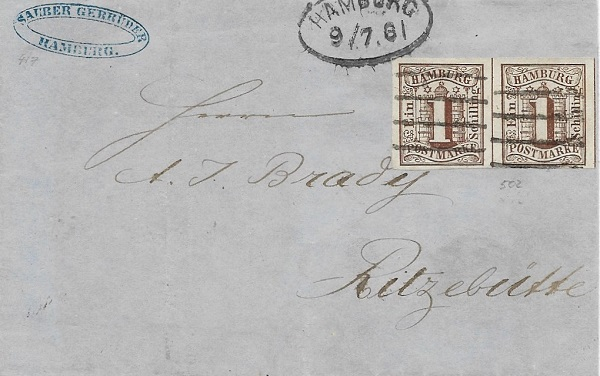 SAUBER GEBRÜDER
HAMBURG.
HAMBURG
9/7.61
HAMBURG
Ein
1
Schilling
POSTMARKE
HAMBURG
Ein
1
Schilling
POSTMARKE
Herrn
A. J. Brady
502
Ritzebütte